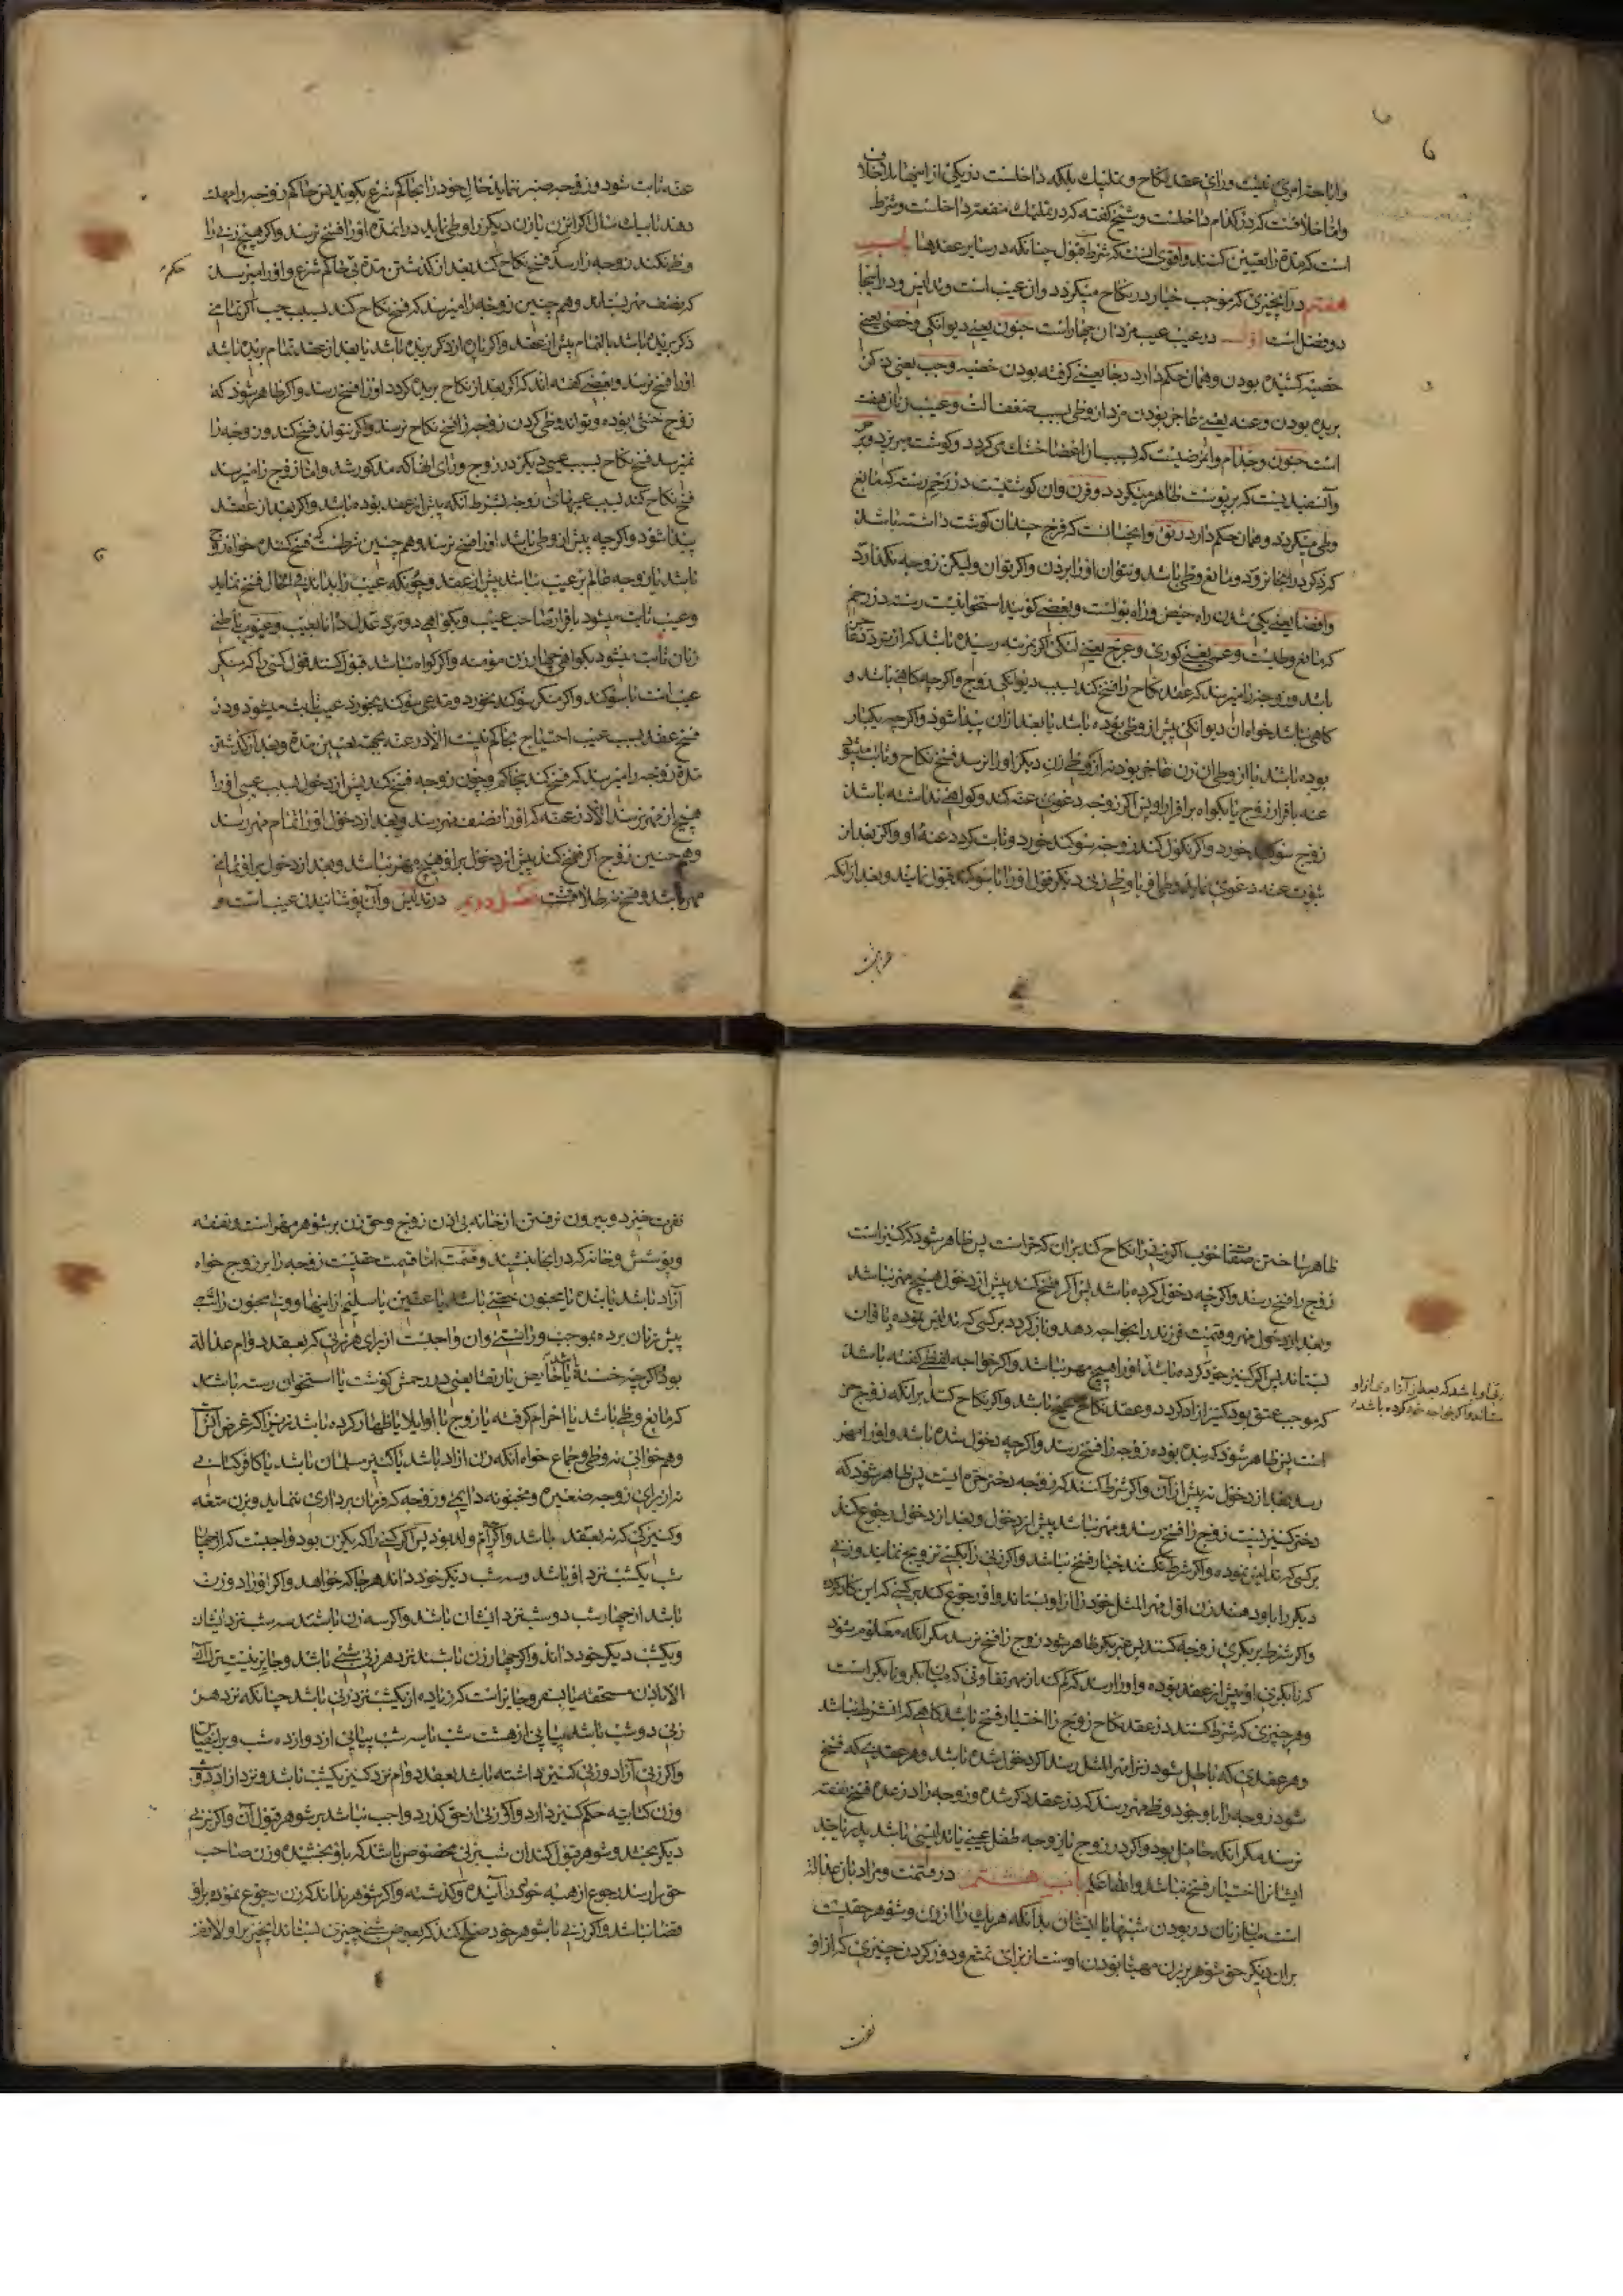 واباحه امری نیست ورای عقد نکاح و تملیک بلکه داخلست در یکی از اینها بلاخلاف
واما خلافست که در کدام داخلست و شیخ گفته که در تملیک منفعت داخلست و شرط
است که مدة را تعیین کنند و اقوی آنست که شرطست قبول چنانکه در سایر عقدها باب
هفتم در آنچیزی که موجب خیار در نکاح میگردد وان عیب است و تدلیس و در اینجا
دو فصل است اول در عیب عیب مردان چهار است جنون یعنی دیوانگی و خصی یعنی
خصیه کشیده بودن و همان حکم دارد وجا یعنی کوفته بودن خصیه وجب یعنی ذکر
بریده بودن وعنه یعنی عاجز بودن مرد از وطی بسبب ضعف الت و عیب زنان هفت
است جنون و جذام وان مرضیست که بسبب آن اعضا خشک میگردد و گوشت میریزد و برص
وآن سفیدیست که بر پوست ظاهر میگردد و قرن وان گوشتیست در رحم رسته که مانع
وطی میگردد و همان حکم دارد رتق وان چنان است که فرج چندان گوشت داشته باشد
که ذکر در انجا نرود و مانع وطی باشد و نتوان او را بردن و اگر توان ولیکن زوجه نگذارد
وافضا یعنی یکی شدن راه حیض و راه بولست و بعضی گویند استخوانیست رسته در رحم
که مانع وطیست و عمی یعنی کوری و عرج یعنی لنگی اگر بمرتبه رسیده باشد که از تردد عاجز
باشد و زوجه را میرسد که عقد نکاح را فسخ کند بسبب دیوانگی زوج و اگرچه گاهی باشد و
گاهی نباشد خواه ان دیوانگی پیش از وطی بوده باشد یا بعد از آن پیدا شود و اگرچه یکبار
بوده باشد با از وطی آن زن عاجز بود نه از وطی زن دیگر او را نرسد فسخ نکاح و ثابت میشود
عنه باقرار زوج یا بگواه بر اقرار او پس اگر زوجه دعوی عنه کند و گواهی نداشته باشد
زوج سوگند خورد و اگر نکول کند زوجه سوگند خورد و ثابت گردد عنه او و اگر بعد از
ثبوت عنه دعوی نماید وطی او یا وطی زنی دیگر قول او را با سوگند قبول نمایند و بعد از انکه
عنه ثابت شود و زوجه صبر ننماید حال خود را بحاکم شرع بگوید پس حاکم زوجه را مهلت
دهد تا بیک سال اگر این زن یا زن دیگر را وطی نماید در اینمدة او را فسخ نرسد و اگر هیچ زنی را
وطی نکند زوجه را رسد که فسخ نکاح کند بعد از گذشتن مدة بی حاکم شرع و او را میرسد
حکم
که نصف مهر بستاند و هم چنین زوجه را میرسد که فسخ نکاح کند بسبب جب اگر تمامی
ذکر بریده باشد بالتمام پیش از عقد و اگر پاره از ذکر بریده باشد یا بعد از عقد تمام بریده باشد
او را فسخ نرسد و بعضی گفته اند که اگر بعد از نکاح بریده گردد او را فسخ رسد و اگر ظاهر شود که
زوج خنثی بوده و تواند وطی کردن زوجه را فسخ نکاح نرسد و اگر نتواند فسخ کند و زوجه را
نمیرسد فسخ نکاح بسبب عیبی دیگر در زوج ورای اینها که مذکور شد و اما زوج را میرسد
فسخ نکاح کند بسبب عیبهای زوجه بشرط آنکه پیش از عقد بوده باشد و اگر بعد از عقد
پیدا شود و اگر چه پیش از وطی باشد او را فسخ نرسد و هم چنین شرطست که فسخ کننده خواه زوج
باشد یا زوجه عالم بر عیب نباشد پیش از عقد و چونکه عیب را بداند فی الحال فسخ نماید
و عیب ثابت میشود باقرار صاحب عیب و بگواهی دو مرد عدل دانا بعیب و عیوب باطنی
زنان ثابت میشود بگواهی چهار زن مؤمنه و اگر گواه نباشد قبول کنند قول کسی را که منکر
عیب است با سوگند و اگر منکر سوگند نخورد و مدعی سوگند بخورد عیب ثابت میشود و در
فسخ عقد بسبب عیب احتیاج بحاکم نیست الا در عنه بجهت تعیین مدة و بعد از گذشتن
مدة زوجه را میرسد که فسخ کند بی حاکم و چون زوجه فسخ کند پیش از دخول بسبب عیبی او را
هیچ از مهر نرسد الا در عنه که او را نصف مهر رسد و بعد از دخول او را تمام مهر رسد
و هم چنین زوج اگر فسخ کند پیش از دخول بر او هیچ مهر نباشد و بعد از دخول بر او تمامی
مهر باشد و فسخ شرط طلاق نیست فصل دویم در تدلیس وآن پوشانیدن عیب است و
ظاهر ساختن صفتها خوب اگر زنی را نکاح کند بر ان که حره است پس ظاهر شود که کنیز است
زوج را فسخ رسد و اگر چه دخول کرده باشد پس اگر فسخ کند پیش از دخول هیچ مهر نباشد
و بعد از دخول مهر و قیمت فرزند را بخواجه دهد و باز گردد بر کسی که تدلیس نموده با وان
بستاند پس اگر کنیز خود کرده باشد او را هیچ مهر نباشد و اگر خواجه لفظی گفته باشد
رقبه او باشد که بعد از آزادی از او
بستاند و اگر خواجه خود کرده باشد
که موجب عتق بود کنیز ازاد گردد و عقد نکاح صحیح باشد و اگر نکاح کند بر انکه زوج حر
است پس ظاهر شود که بنده بوده زوجه را فسخ رسد و اگر چه دخول شده باشد و او را مهر
رسد بعد از دخول نه پیش از آن و اگر شرط کنند که زوجه دختر حره ایست پس ظاهر شود که
دختر کنیز نیست زوج را فسخ رسد و مهر نباشد پیش از دخول و بعد از دخول رجوع کند
بر کسی که تدلیس نموده و اگر شرط نکنند خیار فسخ نباشد و اگر زنی را بکسی تزویج نمایند و زنی
دیگر را باو دهند زن اول مهر المثل خود را از او بستاند و او رجوع کند بر کسی که این کار کرده
و اگر شرط بر بکری زوجه کنند پس غیر بکر ظاهر شود زوج را فسخ نرسد مگر انکه معلوم شود
که نابکری او پیش از عقد بوده و او را رسد که کم کند از مهر تفاوتی که میان بکر و نابکر است
و هر چیزی که شرط کنند در عقد نکاح زوج را اختیار فسخ باشد گاهی که ان شرط نباشد
و هر عقدی که باطل شود زنرا مهر المثل رسد اگر دخول شده باشد و هر عقدی که فسخ
شود زوجه را با وجود وطی مهر رسد که در عقد ذکر شده و زوجه را در عده فسخ نفقه
نرسد مگر انکه حامل بود و اگر در زوج یا زوجه طفل عیبی یا تدلیسی باشد پدر یا جد
ایشانرا اختیار فسخ نباشد والله اعلم باب هشتم در قسمت و مراد بان عدالة
است میان زنان در بودن شبها با ایشان بدانکه هر یک را از زن و شوهر حقیست
بران دیگر حق شوهر بر زن مهیا بودن اوست از برای تمتع و دور کردن چیزی که از او
نفرت
نفرت خیزد و بیرون نرفتن از خانه بی اذن زوج و حق زن بر شوهر مهر است و نفقه
و پوشش و خانه که در انجا بنشیند و قسمت اما قسمت حقیست زوجه را بر زوج خواه
آزاد باشد یا بنده یا مجنون خصی باشد یا عنین یا سلیم از اینها و ولی مجنون را شبی
پیش زنان برده بموجب وراستی وان واجبست از برای هر زنی که بعقد دوام عداله
بود اگر چه خسته باشد یا حایض یا رتقا یعنی در رحمش گوشت یا استخوان رسته باشد
که مانع وطی باشد یا احرام گرفته یا زوج با او ایلا یا ظهار کرده باشد زیرا که غرض انس
و هم خوابی نه وطی و جماع خواه آنکه زن ازاد باشد یا کنیز مسلمان باشد یا کافر کتابی
نه از برای زوجه صغیره و مجنونه دایمی و زوجه که فرمان برداری ننماید و زن متعه
و کنیزکی که نه بعقد باشد و اگر چه ام ولد بود پس اگر کسی را که یک زن بود واجبست که از چهار
شب یکشب نزد او باشد و سه شب دیگر خود داند هر جا که خواهد و اگر او را دو زن
باشد از چهار شب دو شب نزد ایشان باشد و اگر سه زن باشند سه شب نزد ایشان
و یکشب دیگر خود داند و اگر چهار زن باشند نزد هر زنی شبی باشد و جایز نیست ترک آن
الا باذن مستحقه یا سفر و جایز است که زیاده از یکشب نزد زنی باشد چنانکه نزد هر
زنی دو شب باشد پیاپی از هشت شب یا سه شب پیاپی از دوازده شب و بر این قیاس
و اگر زنی آزاد و زنی کنیز داشته باشد بعقد دوام نزد کنیز یکشب باشد و نزد ازاد دو شب
وزن کتابیه حکم کنیز دارد و اگر زنی از حق گذرد واجب نباشد بر شوهر قبول آن و اگر بزنی
دیگر بخشد و شوهر قبول کند ان شب بزنی مخصوص باشد که باو بخشیده و زن صاحب
حق را رسد رجوع از هبه خود در آینده و گذشته و اگر شوهر نداند که زن رجوع نموده بر او
قضا نباشد و اگر زنی با شوهر خود صلح کند که بعوض شبی چیزی بستاند انچیز بر او لازم